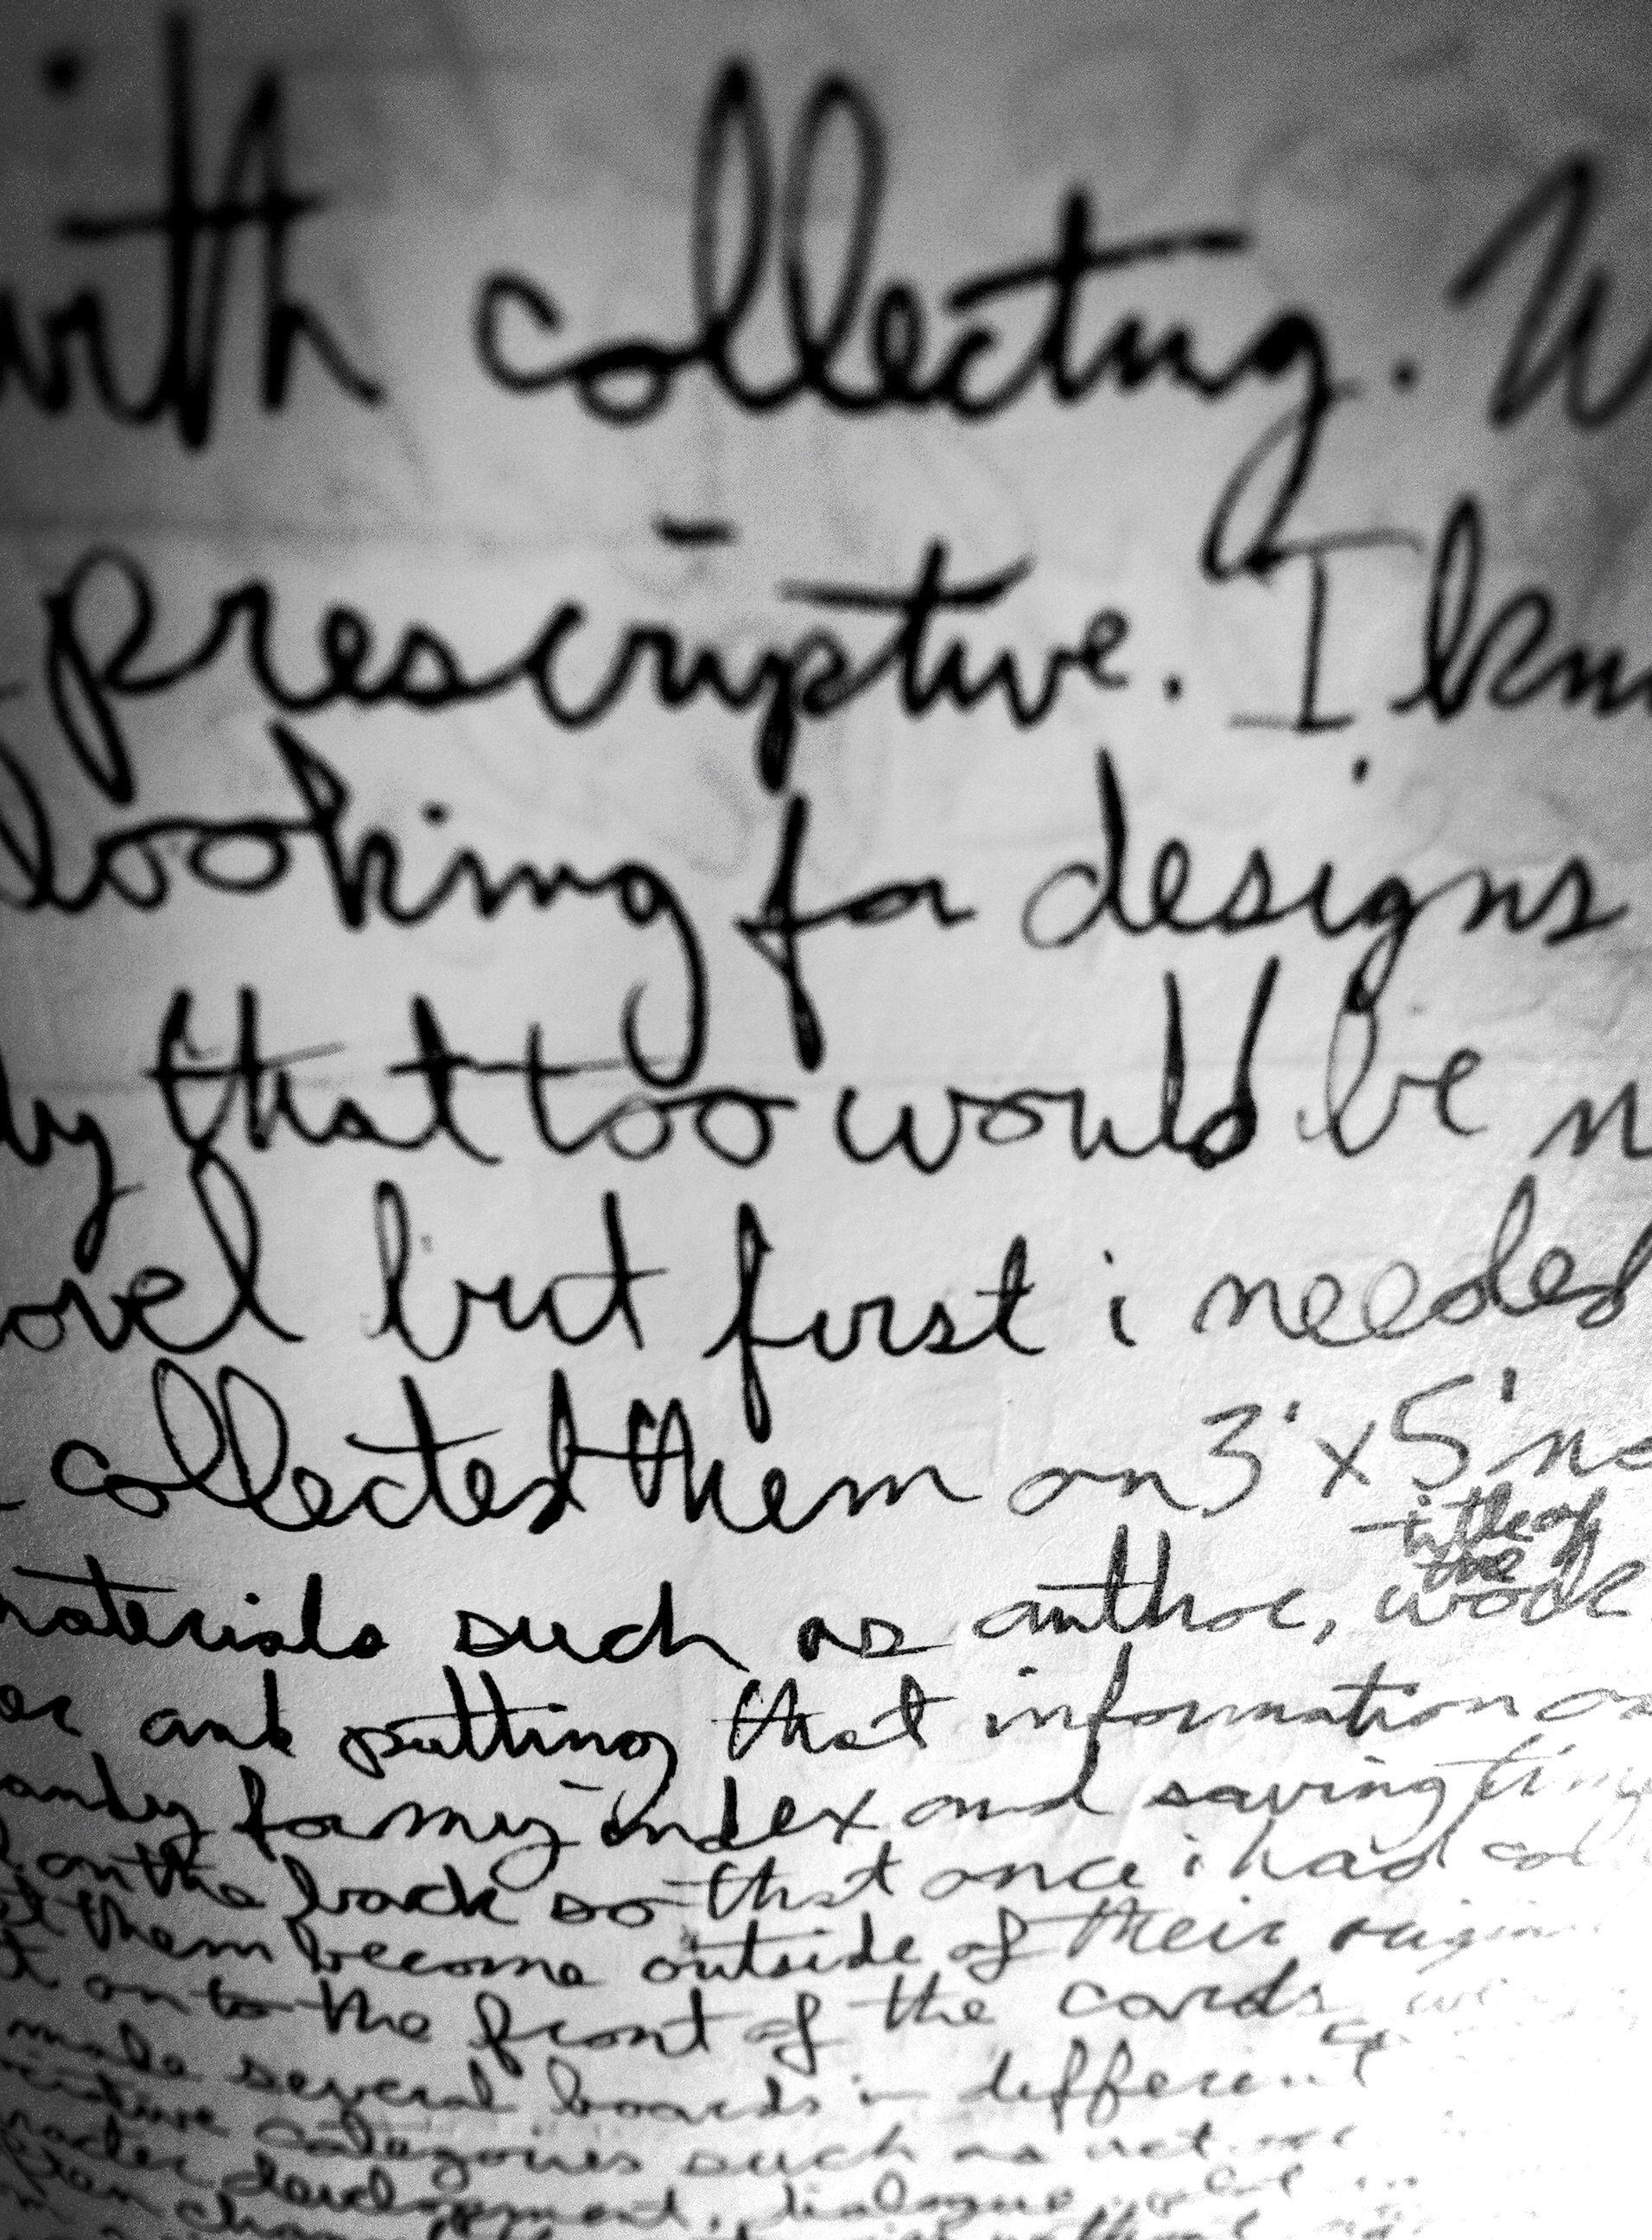 with collecting. W
prescriptive. I kn
looking for designs
ly that too would be n
ovel but first i needed
collected them on 3' x 5' no
title of
the
materials such as author, work
or and putting that information on
andy for my index and saving tim
on the back so that once i had col
et them become outside of their origin
t onto the front of the cards,
made several boards in different
categories such as
racter development, dialogue